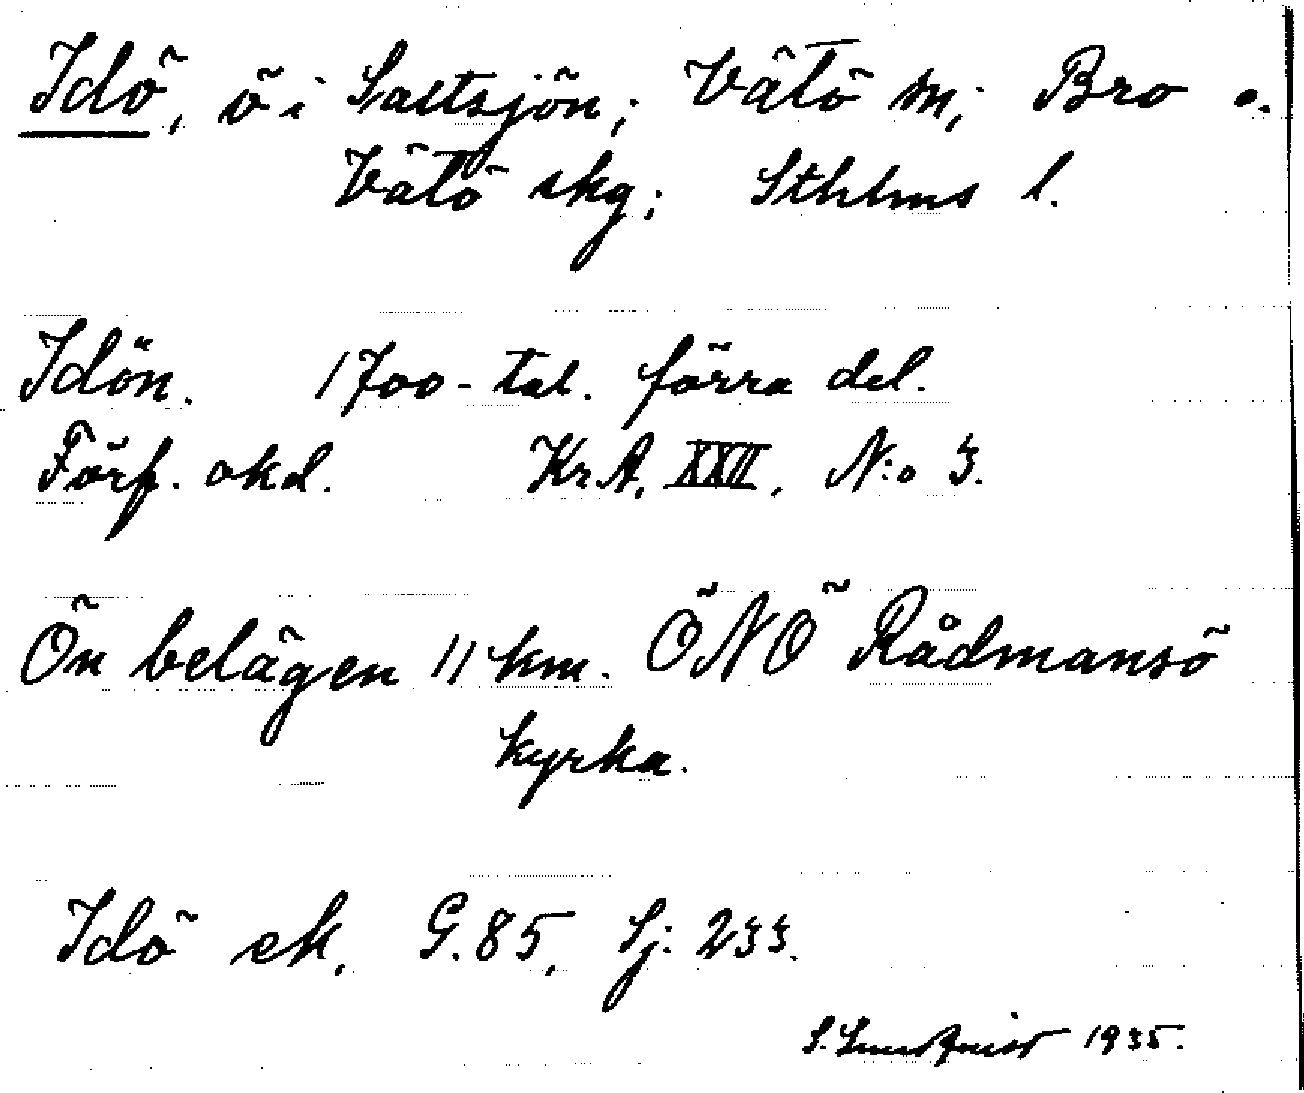 Idö, ö i Saltsjön; Vätö sn; Bro o.
Vätö skg; Sthlms l.
Idön. 1700-tal. förra del.
Förf. okd. Kr.A. XXII. N:o 3.
Ön belägen 11 km. ÖNÖ Rådmansö
kyrka.
Idö ek. G.85, Sj: 233.
S. Lundqvist 1935.